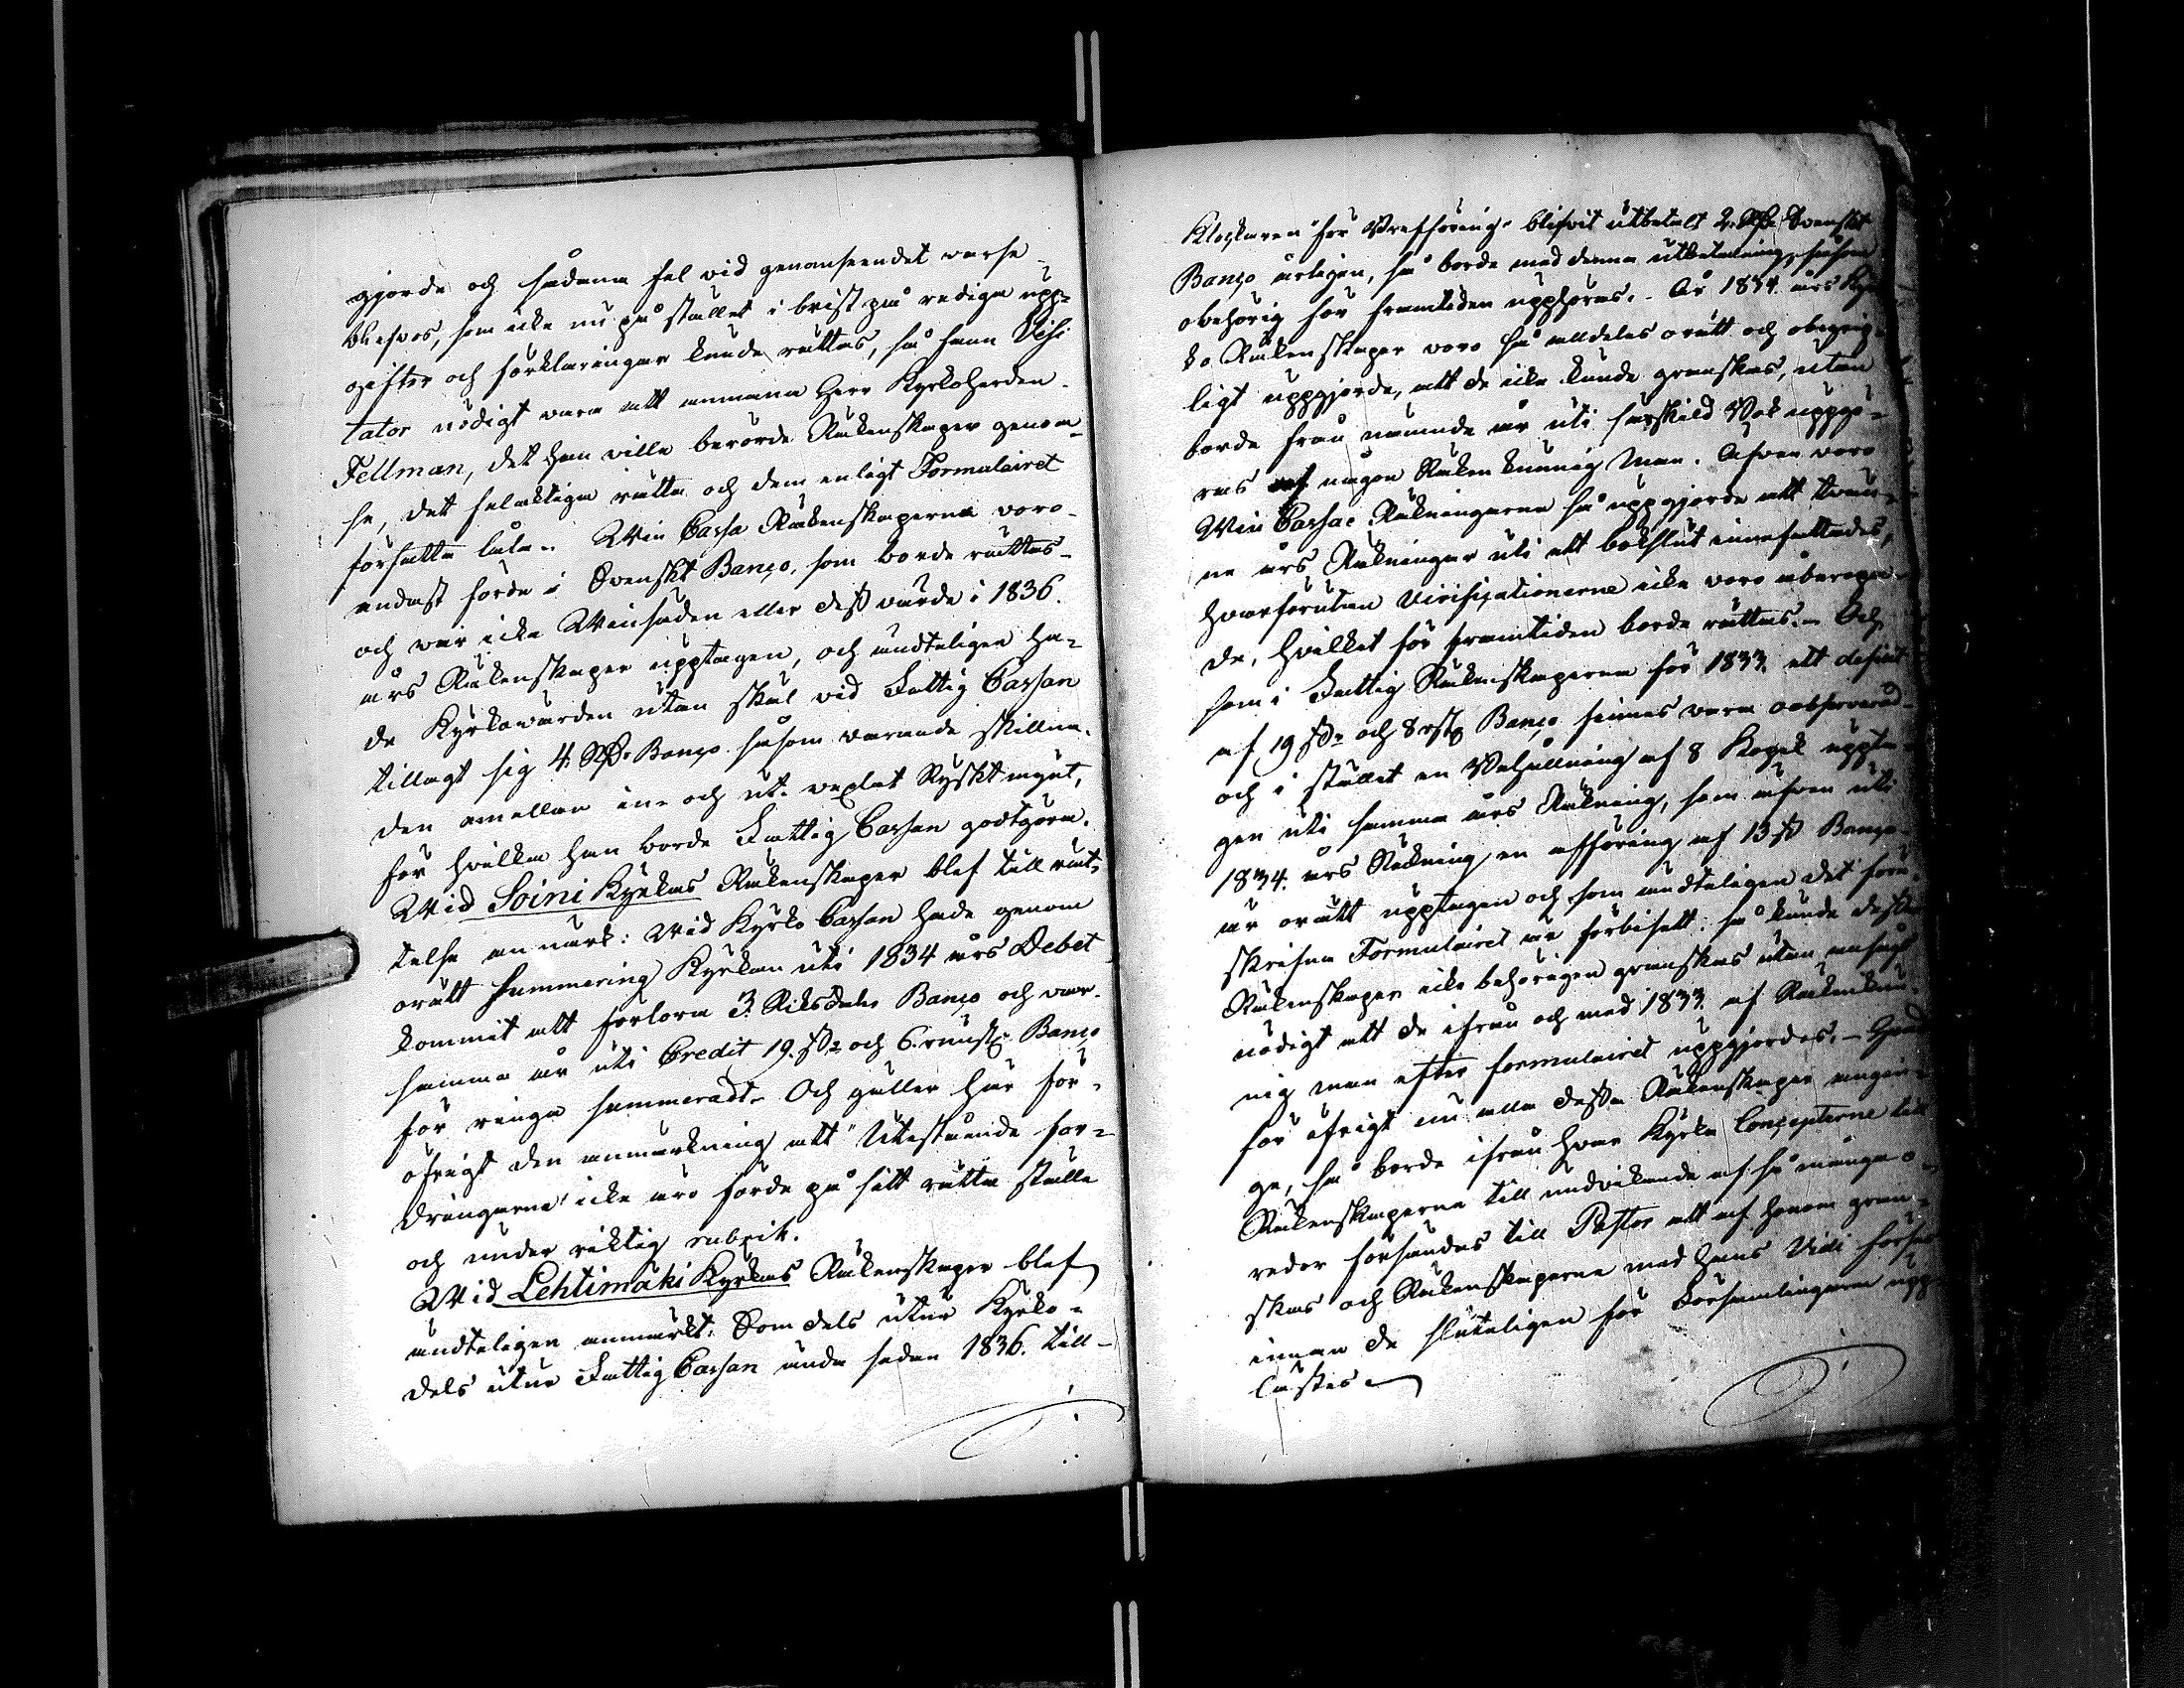 gjorde och sådana fel vid genomseendet varse
blefvos, som icke nu på stället i brist på rediga upp-
gifter och förklaringar kunde rättas, så fann Visi
tator nödigt vara att anmana Herr Kyrkoherden
Fellman, det han ville berörde Räkenskaper genom-
se, det felaktiga rätta och dem enligt Formulairet
författa låta. Win Cassa Räkenskaperna voro
endast förde i Svenskt Banco, som borde rättas
och var icke Winsäden eller dess värde i 1836.
års Räkenskaper upptagen, och undteligen ha-
de Kyrkovärden utan skäl vid Fattig Cassan
tillagt sig 4. Rd. Banco såsom varande skillna-
den emellan in- och ut- vexlat Ryskt mynt,
för hvilka han borde Fattig Cassan godtgöra.
Wid Soini Kyrkas Räkenskaper blef till rät-
telse anmärkt: Wid Kyrko Cassan hade genom
orätt summering Kyrkan uti 1834 års Debet
kommit att förlora 3. Riksdaler Banco och var
samma år uti Credit 19. s. och 6. runst. Banco
för ringa summeradt. Och gäller här för
öfrigt den anmärkning att "Utestående for-
dringarna" icke äro förde på sitt rätta ställe
och under riktig rubrik.
Wid Lehtimäki Kyrkas Räkenskaper blef
undteligen anmärkt: Som dels utur Kyrko-
dels utur Fattig Cassan ända sedan 1836. till-
Klockaren "för Vrakföring" blifvit utbetalt 2. Rd. Svenskt
Banco årligen, så borde med denna utbetalning, såsom
obehörig för framtiden upphöras. År 1834 års Kyr
ko Räkenskaper voro så alldeles orätt och obegrip-
ligt uppgjorde, att de icke kunde granskas, utan
borde från nämnde år uti särskild Bok uppgö-
ras af någon Räkenkunnig Man. Äfven voro
Win Cassae Räkningarna så uppgjorde att tvän-
ne års Räkningar uti ett bokslut innefattades,
hvarförutan Virificationerne icke voro åberopa-
de, hvilket för framtiden borde rättas. Och
som i Fattig Räkenskaperna för 1833. ett deficit
af 19 s. och 8 rst. Banco finnes vara oobserverad
och i stället en Behållning af 8 Kopek uppta-
gen uti samma års Räkning, som äfven uti
1834. års Räkning en afföring af 13 s. Banco
är orätt upptagen och som undteligen det före-
skrifna Formulairet är förbisett: så kunde dessa
Räkenskaper icke behörigen granskas utan ansågs
nödigt att de ifrån och med 1833. af Räkenkun-
nig man efter formulairet uppgjordes.
för öfrigt nu alla dessa Räkenskaper
ge, så borde ifrån hvar Kyrka Concepterne till
Räkenskaperna till undvikande af så många o-
redor försändas till Pastor att af honom gran-
skas och Räkenskaperna med hans Vidi förses
innan de sluteligen för Församlingarne upp-
lästes